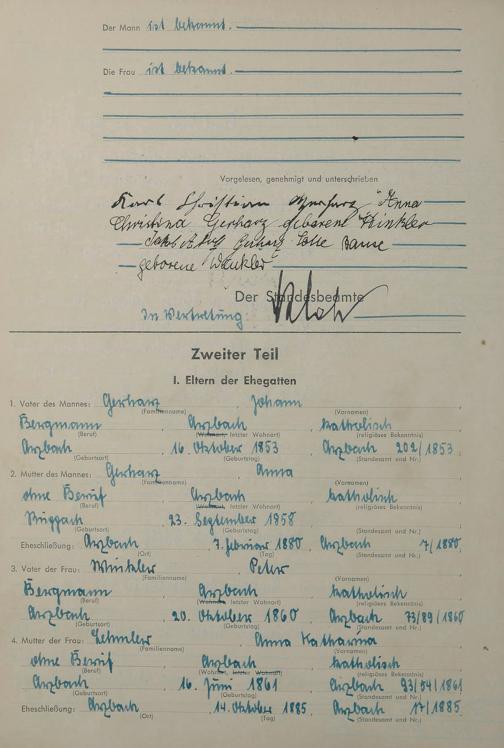 Der Mann ist bekannt.
Die Frau ist bekannt.
Vorgelesen, genehmigt und unterschrieben
Karl Christian Gerharz Anna
Christina Gerharz geborene Winkler
Gerharz Lotte Banse
geborene Winkler
Der Standesbeamte
In Vertretung:
Zweiter Teil
I. Eltern der Ehegatten
1. Vater des Mannes: Gerharz, Johann
(Familienname) (Vornamen)
Bergmann, Arzbach, katholisch
(Beruf) (Wohnort, letzter Wohnort) (religiöses Bekenntnis)
Arzbach, 16. Oktober 1853, Arzbach 202/1853.
(Geburtsort) (Geburtstag) (Standesamt und Nr.)
2. Mutter des Mannes: Gerharz Anna
(Familienname) (Vornamen)
ohne Beruf, Arzbach, katholisch
(Beruf) (Wohnort, letzter Wohnort) (religiöses Bekenntnis)
23. September 1858
(Geburtsort) (Geburtstag) (Standesamt und Nr.)
Eheschließung: Arzbach, 7. Februar 1880, Arzbach 7/1880.
(Ort) (Tag) (Standesamt und Nr.)
3. Vater der Frau: Winkler Peter
(Familienname) (Vornamen)
Bergmann, Arzbach, katholisch
(Beruf) (Wohnort, letzter Wohnort) (religiöses Bekenntnis)
Arzbach, 20. Oktober 1860, Arzbach 73/89/1860
(Geburtsort) (Geburtstag) (Standesamt und Nr.)
4. Mutter der Frau: Anna Katharina
(Familienname) (Vornamen)
ohne Beruf, Arzbach, katholisch
(Beruf) (Wohnort, letzter Wohnort) (religiöses Bekenntnis)
Arzbach, 16. Juni 1861, Arzbach 93/94/1861
(Geburtsort) (Geburtstag) (Standesamt und Nr.)
Eheschließung: Arzbach, 14. Oktober 1885, Arzbach 17/1885.
(Ort) (Tag) (Standesamt und Nr.)